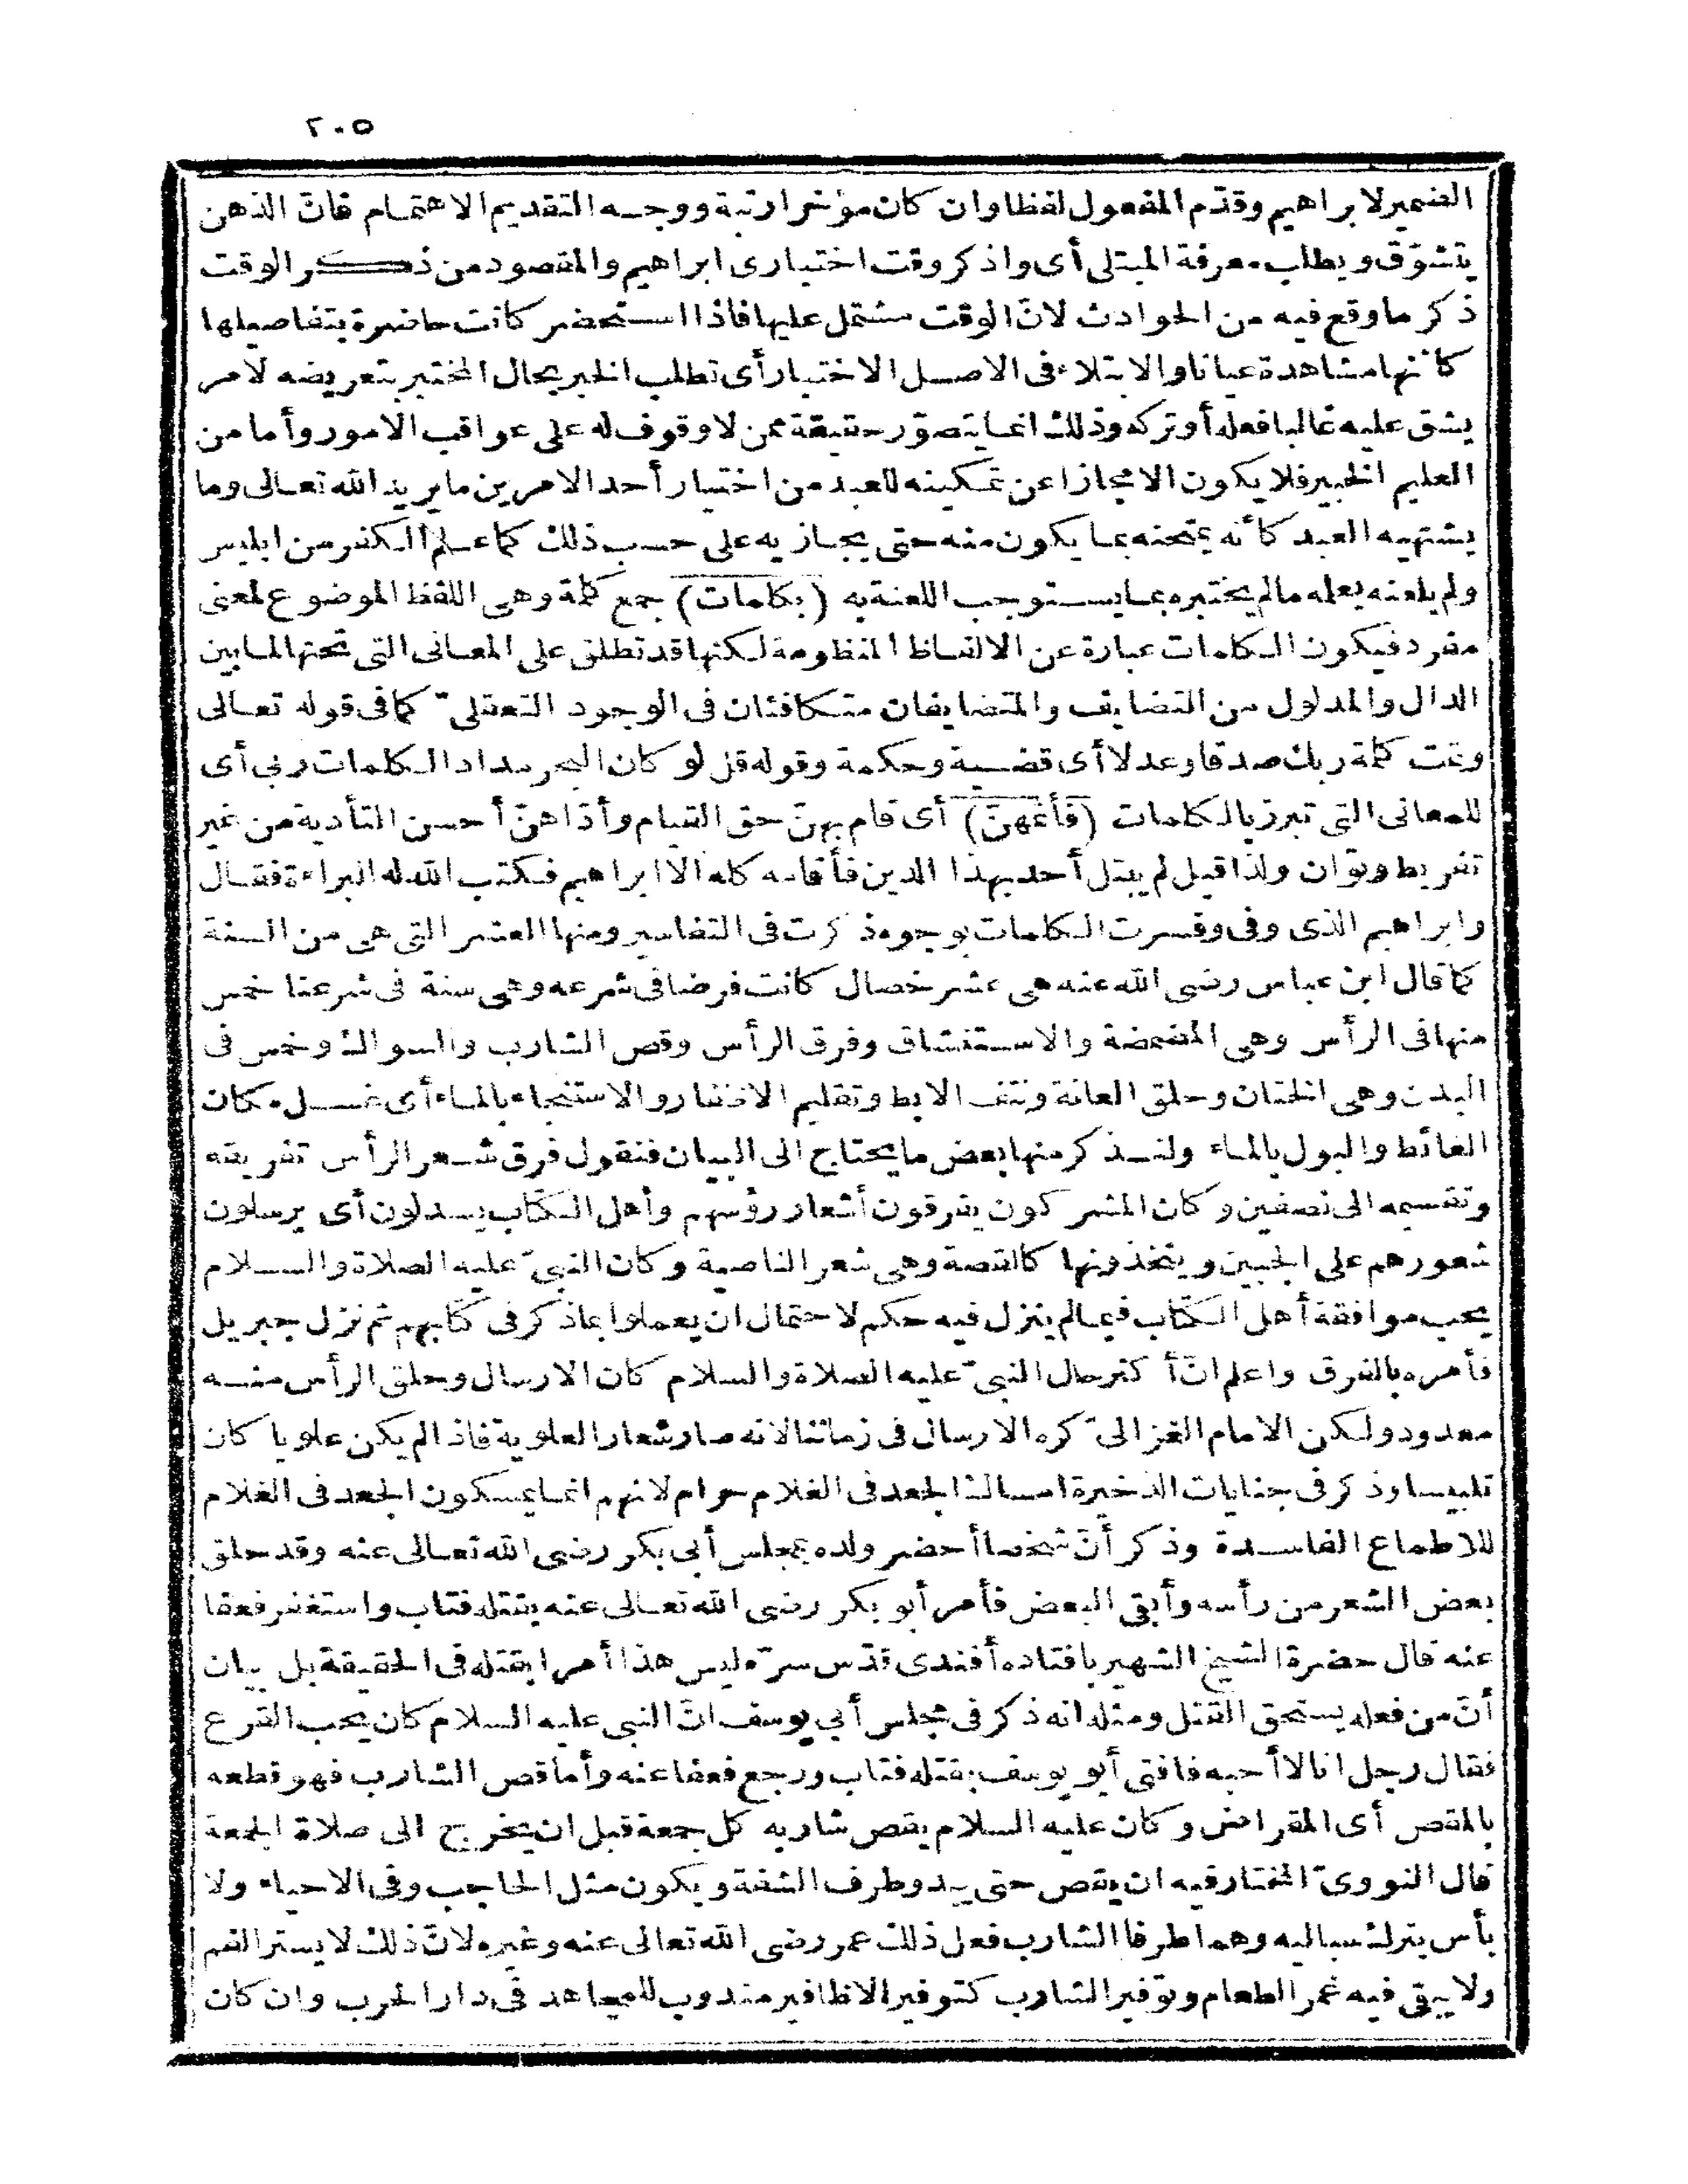 ٢٠٥
الضمير لابراهيم وقدّم المفعول لفظا وان كان مؤخرا رتبة ووجه التقديم الاهتمام فانّ الذهن
يتشوّق ويطلب معرفة المبتلى أى واذكر وقت اختبارى ابراهيم والمقصود من ذكر الوقت
ذكر ما وقع فيه من الحوادث لانّ الوقت مشتمل عليها فاذا استحضر كانت حاضرة بتفاصيلها
كأنها مشاهدة عيانا والابتلاء فى الاصل الاختبار أى تطلب الخبر بحال المختبر بتعريضه لامر
يشق عليه غالبا فعله أو تركه وذلك انما يتصوّر حقيقة ممن لا وقوف له على عواقب الامور وأما من
العليم الخبير فلا يكون الا مجازا عن تمكينه للعبد من اختيار أحد الامرين ما يريد الله تعالى وما
يشتهيه العبد كأنه يمتحنه بما يكون منه حتى يجازيه على حسب ذلك كما علم الكفر من ابليس
ولم يلعنه بعلمه ما لم يختبره بما يستوجب اللعنة به (بكلمات) جمع كلمة وهى اللفظ الموضوع لمعنى
مفرد فيكون الكلمات عبارة عن الالفاظ المنظومة لكنها قد تطلق على المعانى التى تحتها لما بين
الدال والمدلول من التضايف والمتضايفان متكافئان فى الوجود التعقلىّ كما فى قوله تعالى
وتمت كلمة ربك صدقا وعدلا أى قضية وحكمة وقوله قل لو كان البحر مدادا لكلمات ربى أى
للمعانى التى تبرز بالكلمات (فأتمهنّ) أى قام بهنّ حق القيام وأدّاهنّ أحسن التأدية من غير
تفريط وتوان ولذا قيل لم يبتل أحد بهذا الدين فأقامه كله الا ابراهيم فكتب الله له البراءة فقال
وابراهيم الذى وفى وفسرت الكلمات بوجوه ذكرت فى التفاسير ومنها العشر التى هى من السنة
كما قال ابن عباس رضى الله عنه هى عشر خصال كانت فرضا فى شرعه وهى سنة فى شرعنا خمس
منها فى الرأس وهى المضمضة والاستنشاق وفرق الرأس وقص الشارب والسواك وخمس فى
البدن وهى الختان وحلق العانة ونتف الابط وتقليم الاظفار والاستنجاء بالماء أى غسل مكان
الغائط والبول بالماء ولنذكر منها بعض ما يحتاج الى البيان فنقول فرق شعر الرأس تفريقه
وتقسيمه الى نصفين وكان المشركون يفرقون أشعار رؤسهم وأهل الكتاب يسدلون أى يرسلون
شعورهم على الجبين ويتخذونها كالقصة وهى شعر الناصية وكان النبىّ عليه الصلاة والسلام
يحب موافقة أهل الكتاب فيما لم ينزل فيه حكم لاحتمال ان يعملوا بما ذكر فى كتابهم ثم نزل جبريل
فأمره بالفرق واعلم انّ أكثر حال النبىّ عليه الصلاة والسلام كان الارسال وحلق الرأس منه
معدود ولكن الامام الغزالىّ كره الارسال فى زماننا لانه صار شعار العلوية فاذا لم يكن علويا كان
تلبيسا وذكر فى جنايات الذخيرة امساك الجعد فى الغلام حرام لانهم انما يمسكون الجعد فى الغلام
للاطماع الفاسدة وذكر أنّ شخصا أحضر ولده بمجلس أبى بكر رضى الله تعالى عنه وقد حلق
بعض الشعر من رأسه وأبقى البعض فأمر أبو بكر رضى الله تعالى عنه بقتله فتاب واستغفر فعفا
عنه قال حضرة الشيخ الشهير بافتاده أفندى قدّس سرّه ليس هذا أمرا بقتله فى الحقيقة بل بيان
أنّ من فعله يستحق القتل ومثله انه ذكر فى مجلس أبى يوسف انّ النبى عليه السلام كان يحب القرع
فقال رجل انا لا أحبه فافتى أبو يوسف بقتله فتاب ورجع فعفا عنه وأما قص الشارب فهو قطعه
بالمقص أى المقراض وكان عليه السلام يقص شاربه كل جمعة قبل ان يخرج الى صلاة الجمعة
قال النووىّ المختار فيه ان يقص حتى يبدو طرف الشفة ويكون مثل الحاجب وفى الاحياء ولا
بأس بترك سباليه وهما طرفا الشارب فعل ذلك عمر رضى الله تعالى عنه وغيره لانّ ذلك لا يستر الفم
ولا يبقى فيه غمر الطعام وتوفير الشارب كتوفير الاظافير مندوب للمجاهد فى دار الحرب وان كان